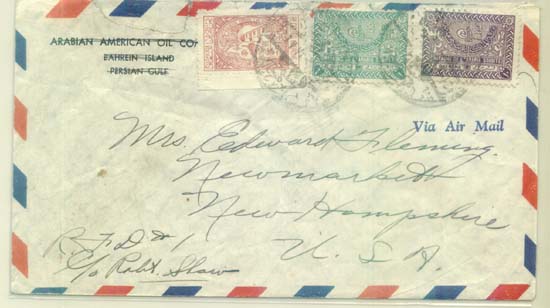 ARABIAN AMERICAN OIL CO
BAHREIN ISLAND
PERSIAN GULF
Via Air Mail
Mrs. Edward Fleming
Newmarket
New Hampshire
U. S. A.
R. F. D # 1
C/o Robt. Shaw